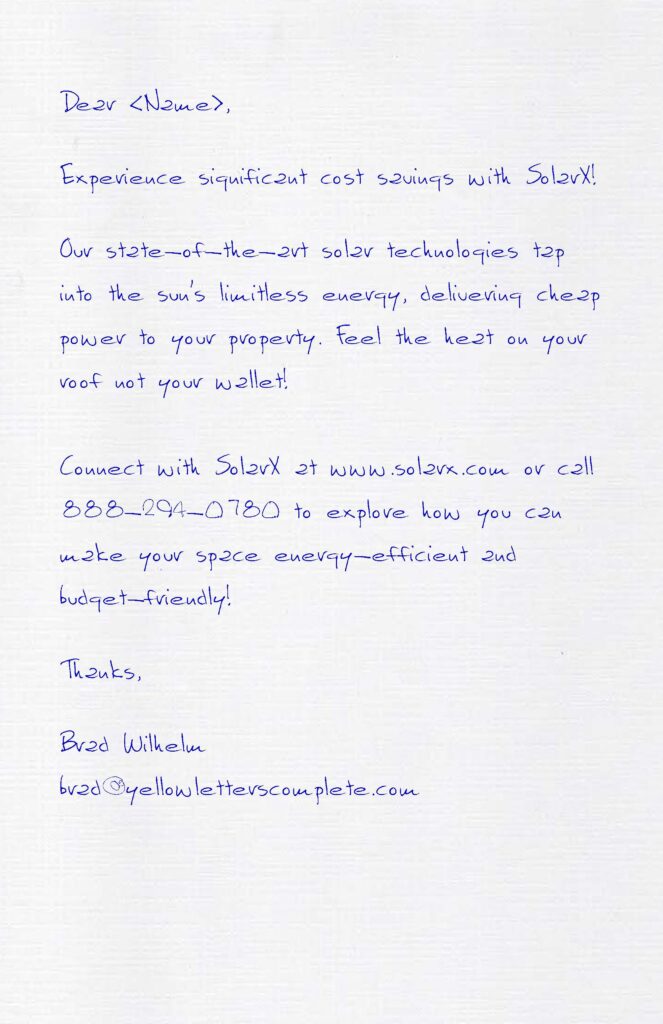 Dear <Name>,
Experience significant cost savings with SolarX!
Our state-of-the-art solar technologies tap
into the sun's limitless energy, delivering cheap
power to your property. Feel the heat on your
roof not your wallet!
Connect with SolarX at www.solarx.com or call
888-294-0780 to explore how you can
make your space energy-efficient and
budget-friendly!
Thanks,
Brad Wilhelm
brad@yellowletterscomplete.com